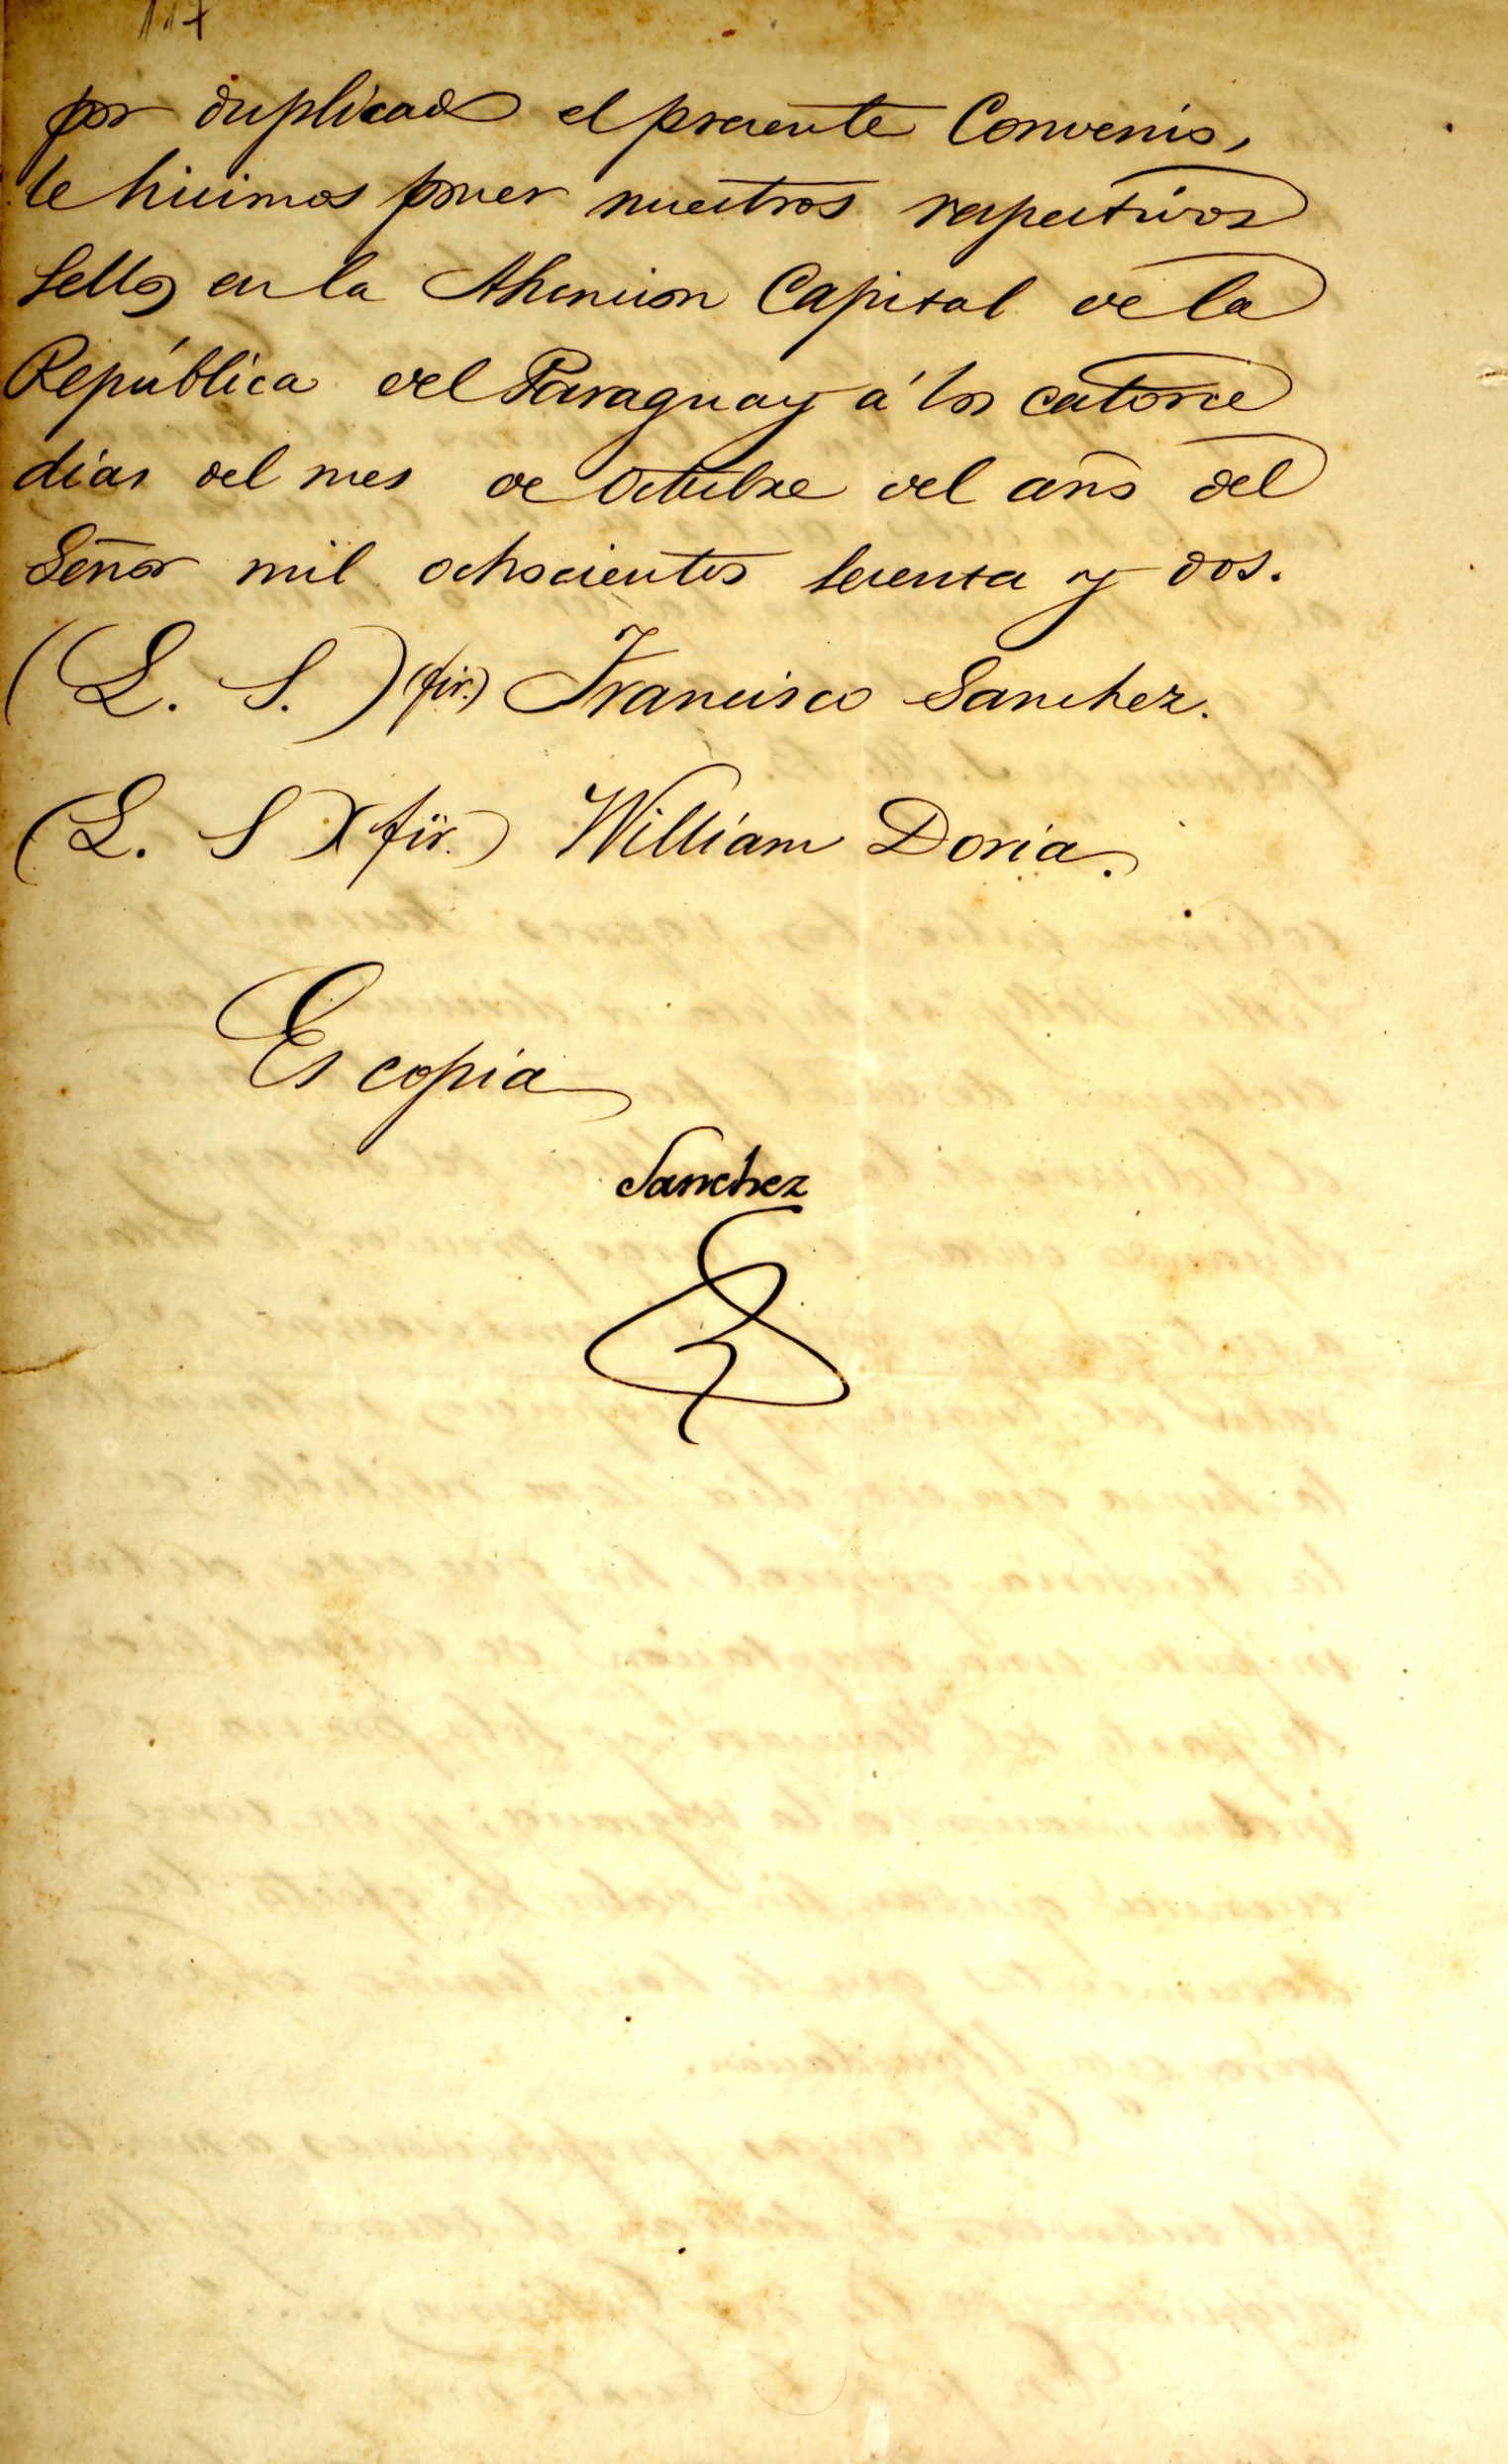 117
por duplicado el presente Convenio,
le hicimos poner nuestros respectivos
sellos en la Asuncion Capital de la
República del Paraguay á los catorce
dias del mes de Octubre del año del
Señor mil ochocientos sesenta y dos.
(L. S.) (fir.) Francisco Sanchez.
(L. S) (fir.) William Doria.
Es copia
Sanchez